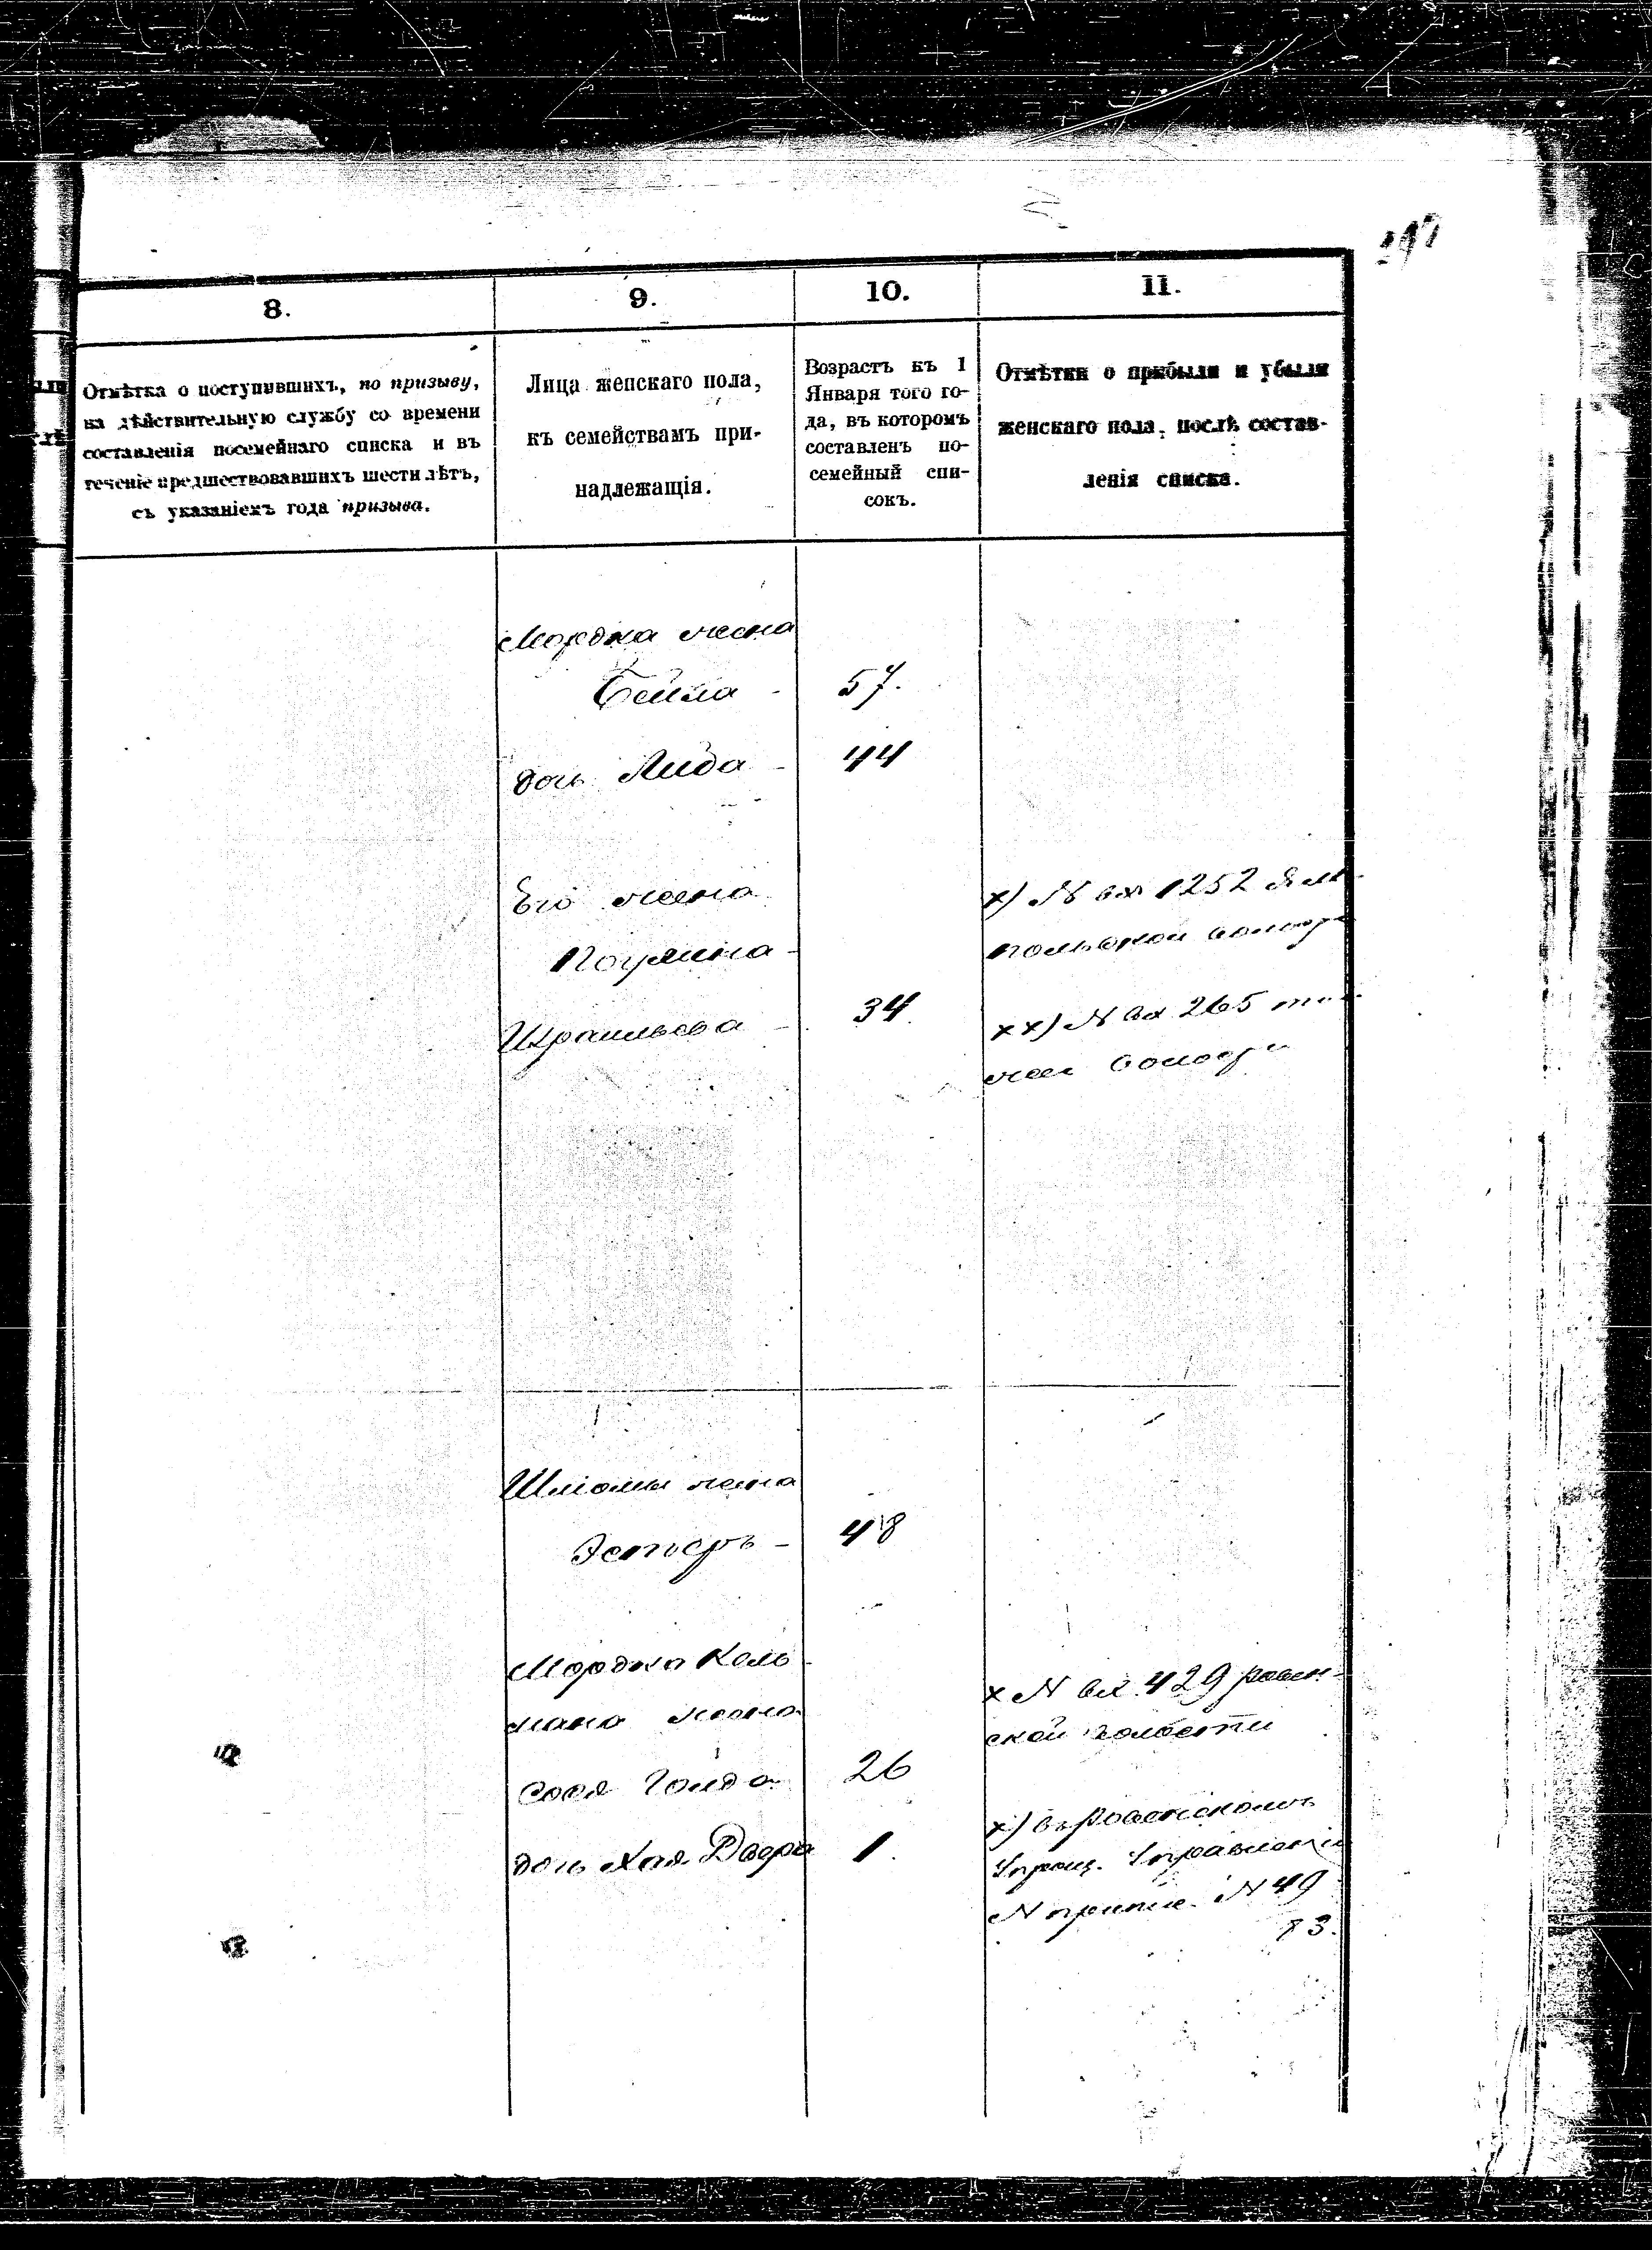 197
8.
9.
10.
11.
Отмѣтка о поступившихъ, по призыву,
на дѣйствительную службу со времени
составленія посемейнаго списка и въ
теченіе предшествовавшихъ шести лѣтъ,
съ указаніемъ года призыва.
Лица женскаго пола,
къ семействамъ при-
надлежащія.
Возрастъ къ 1
Января того го-
да, въ которомъ
составленъ по-
семейный спи-
сокъ.
Отмѣтки о прибыли и убыли
женскаго пола, послѣ состав-
ленія списка.
Мордка жена
Бейла - 57.
дочь Лида - 44
Его жена
х) N вх 1252
польской
Израильева - 34.
хх) N вх 265
Шліомы жена
Эстеръ - 48
Мордка Кель
мана жена
х N вх. 429 ровен-
ской волости
Сося Голда 26
дочь Хая Двера 1.
х) въ Ровенскомъ
Управленіи
N 49
83.